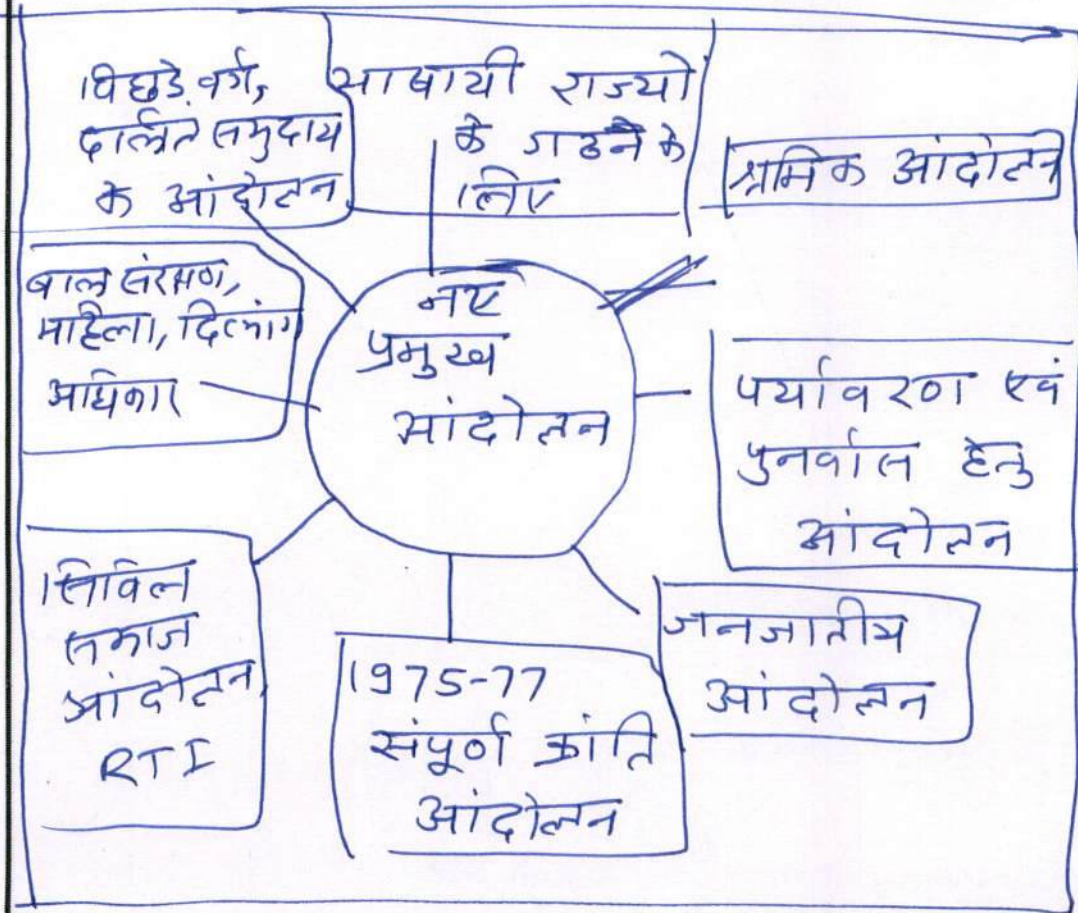 पिछडे वर्ग,
दलित समुदाय
क आंदोलन
भाषायी राज्यों
के गठन के
लिए
श्रमिक आंदोलन
बाल संरक्षण,
महिला, दिव्यांग
अधिकार
नए
प्रमुख
आंदोलन
पर्यावरण एवं
पुनर्वास हेतु
आंदोलन
सिविल
समाज
आंदोलन,
RTI
1975-77
संपूर्ण क्रांति
आंदोलन
जनजातीय
आंदोलन